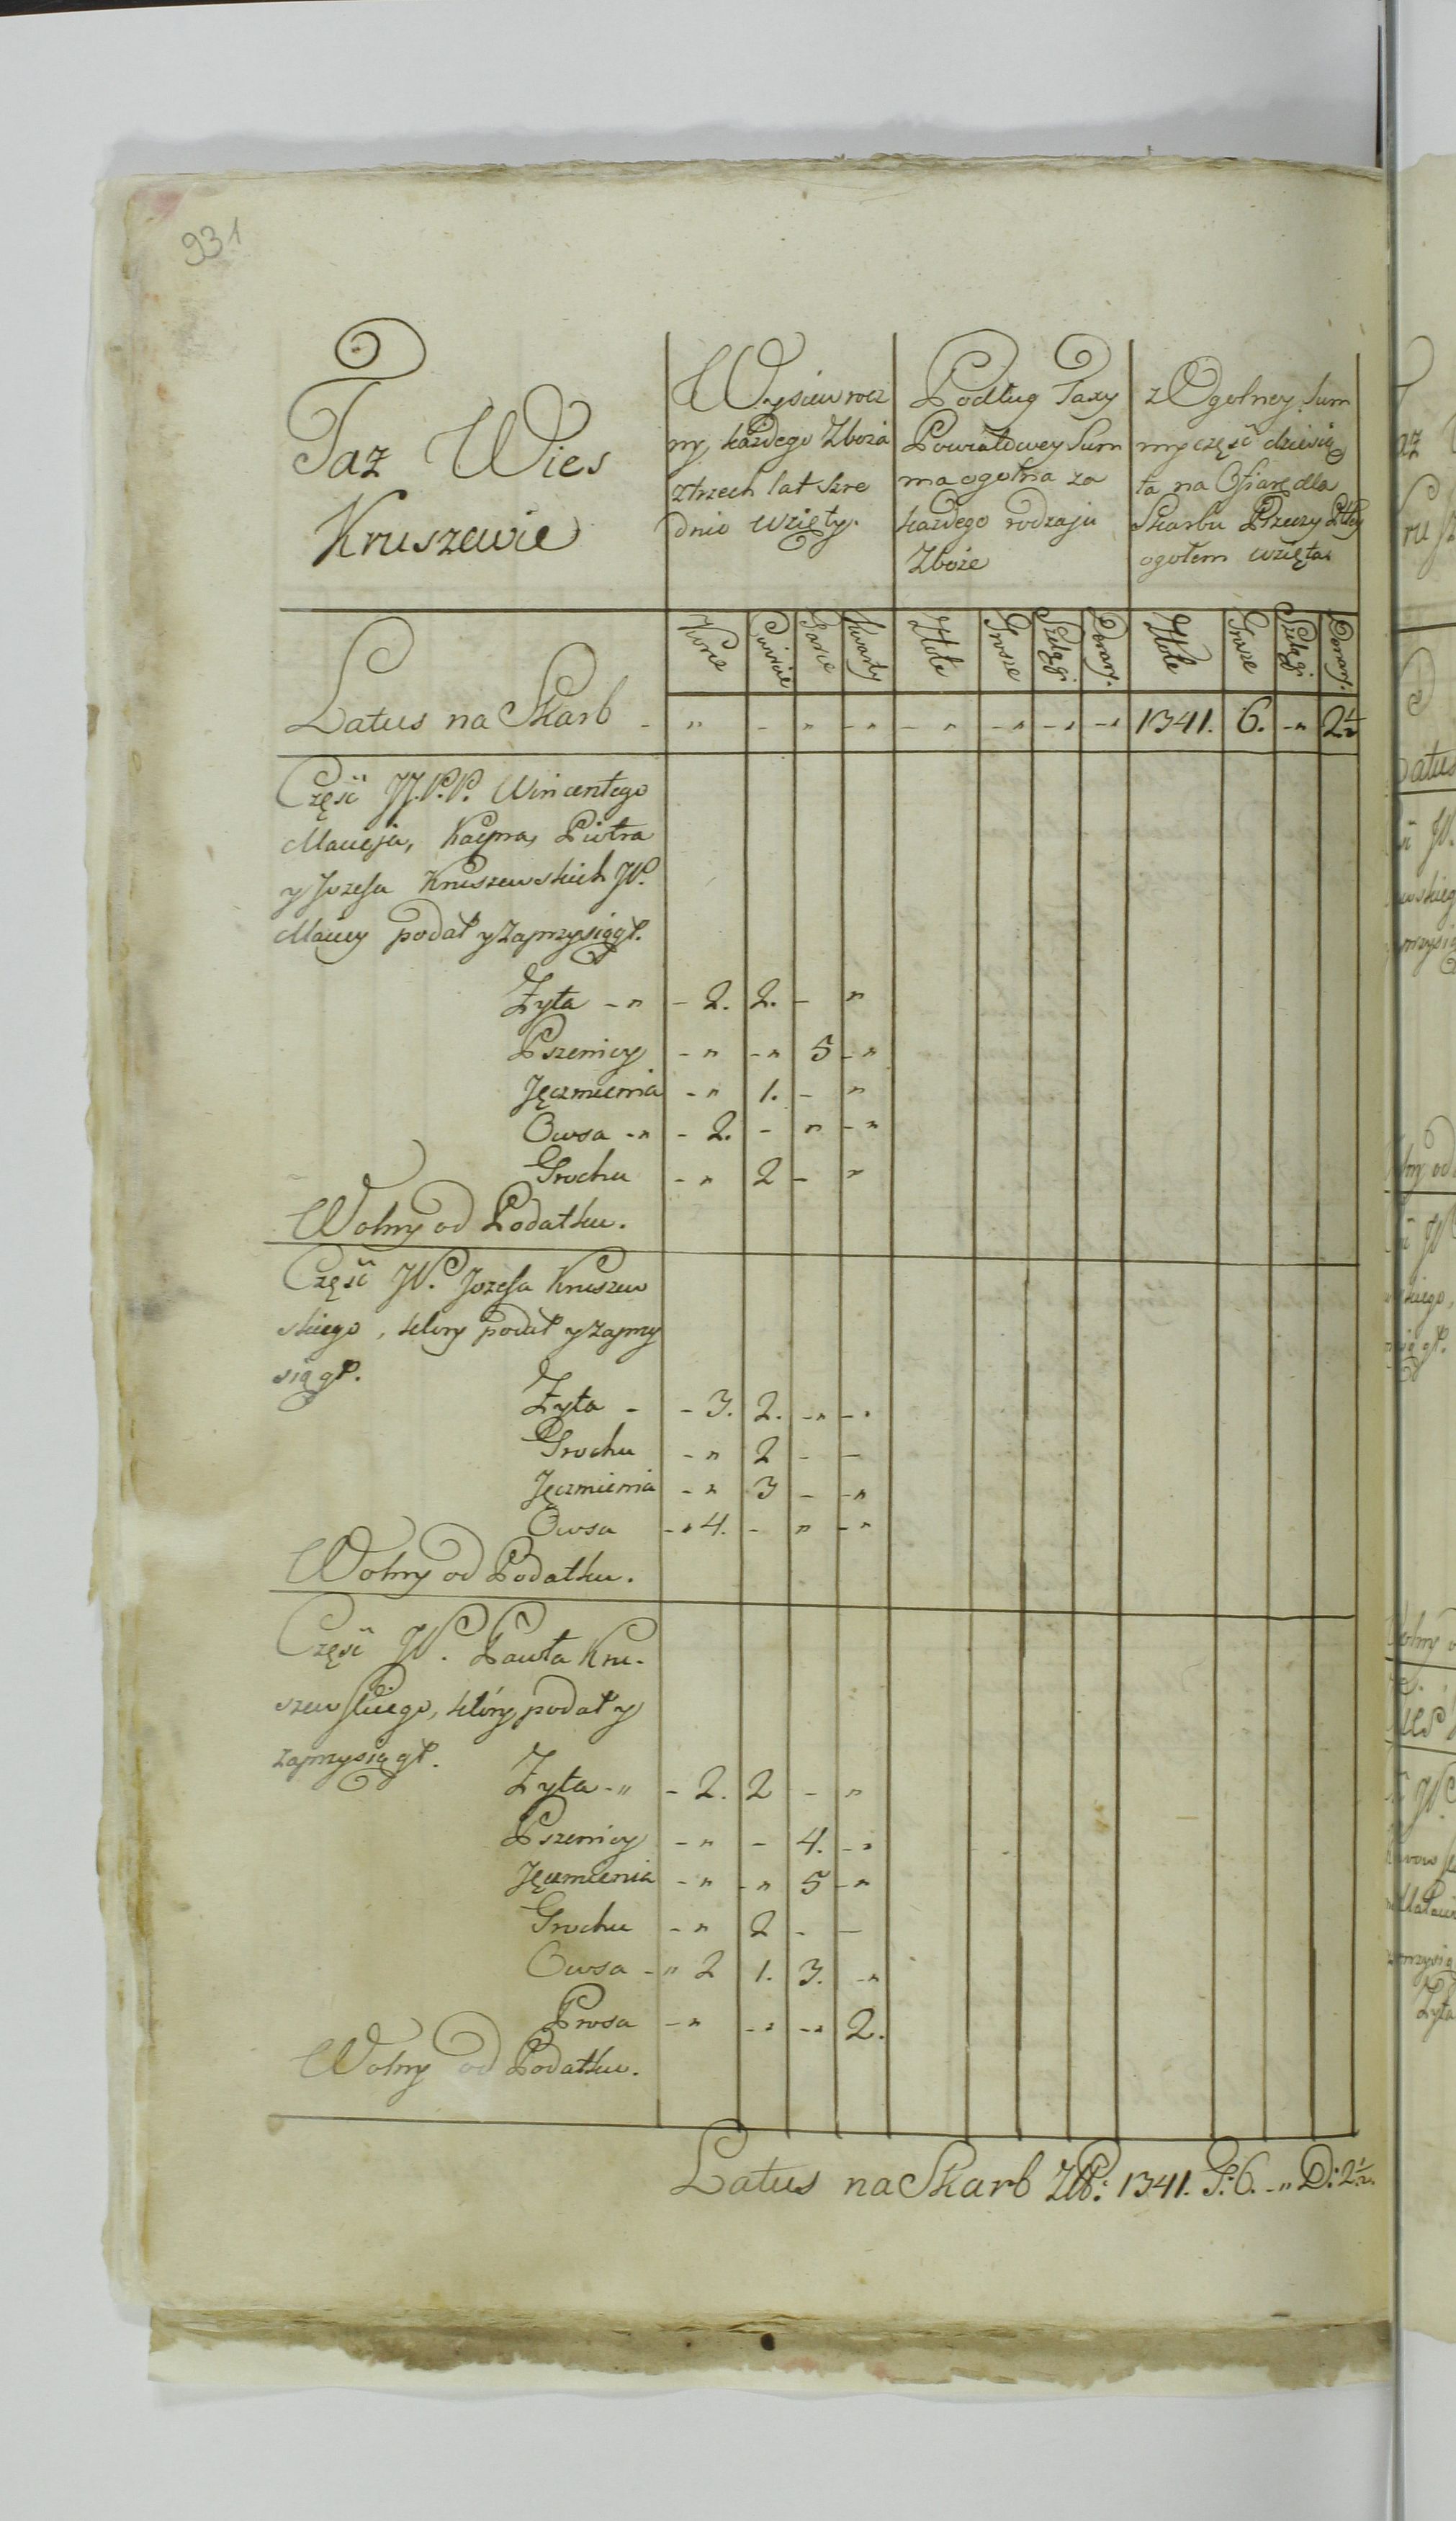 931
Taz Wies
Kruszewie
Wysiew rocz
ny, każdego Zboża
z trzech lat szre
dnio wzięty.
Podług Taxy
Powiatowey Sum
ma ogolna za
każdego rodzaju
Zboże
z Ogolney Sum
my część dziesią
ta na Ofiarę dla
Skarbu Rzeczy Pltey
ogołem wzięta
Korce Cwierci Garce Kwarty Złote Grosze Szelągi Denary. Złote Grosze Szelągi Denary.
Latus na Skarb - „ - „ - „ - „ - „ - „ - „ 1341. 6. - „ 2 1/2
Część JJ. P.P. Wincentego
Macieja, Kacpra, Piotra
y Jozefa Kruszewskich JP.
Maciey podał y zaprzysiągł.
Zyta - „ - 2. 2. - „
Pszenicy - „ - „ 5 - „
Jęczmienia - „ 1. - „
Owsa - „ - 2. - „ - „
Grochu - „ 2 - „
Wolny od Podatku.
Część JP. Jozefa Kruszew
skiego, ktory podał y zaprzy
siągł.
Zyta - - 3. 2. - „ - „
Grochu - „ 2 - -
Jęczmienia - „ 3 - - „
Owsa - „ 4. - „ - „
Wolny od Podatku.
Część JP. Pawła Kru-
szewskiego, który podał y
zaprzysiągł.
Zyta - „ - 2. 2 - „
Pszenicy - „ - 4. - „
Jęczmienia - „ - „ 5 - „
Grochu - „ 2 - -
Owsa - „ 2 1. 3. - „
Prosa - „ - „ - „ 2.
Wolny od Podatku.
Latus na Skarb ZłP: 1341. G: 6. - „ D: 2 1/2.